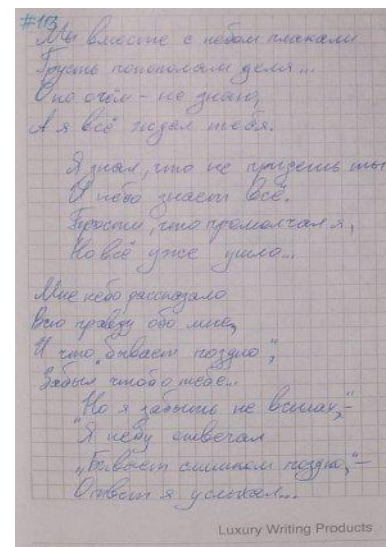 #113
Мы вместе с небом плакали
Грусть попополам деля...
Оно о чём - не знаю,
А я всё ждал тебя.
Я знал, что не придёшь ты
И небо знает всё.
Прости, что промолчал я,
Но всё уже ушло...
Мне небо рассказало
Всю правду обо мне,
И что "бывает поздно",
Забыл чтоб о тебе...
"Но я забыть не в силах", -
"Я небу отвечал
"Бывает слишком поздно", -
Ответ я услыхал...
Luxury Writing Products